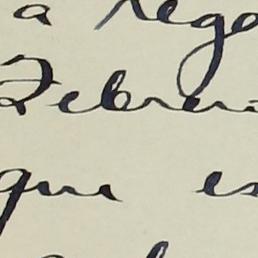 a rega
Febrer
que es